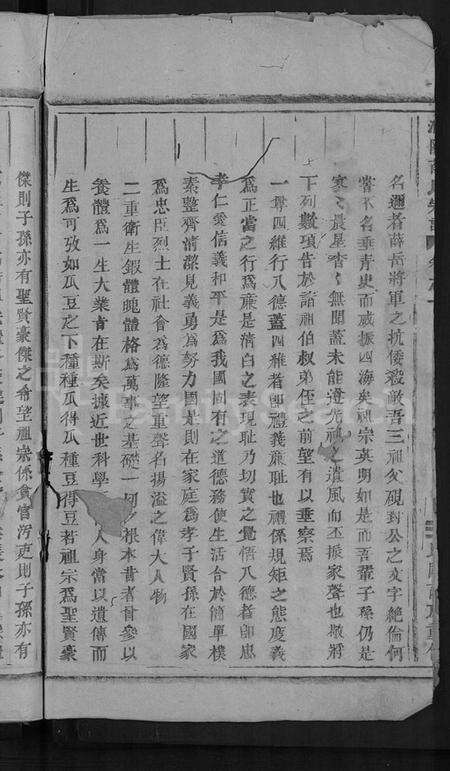 名邇者薛岳將軍之抗倭殺敵吾三祖父硯對公之文字絕倫何
嘗不名垂青史而威振四海矣祖宗英明如是而吾輩子孫仍是
寥晨星杳無聞蓋未能遵先祖之遺風而丕振家聲也墩將
下列數項告於諸祖伯叔弟侄之前望有以垂察焉
一舉四維行八德蓋四維者即禮義廉恥也禮係規矩之態度義
為正當之行為廉是清白之表現恥乃切實之覺悟八德者即忠
孝仁愛信義和平是為我國固有之道德務使生活合於簡單樸
素整齊清潔見義勇為努力國是則在家庭為孝子賢孫在國家
為忠臣烈士在社會為德隆望重聲名揚溢之偉大人物
二重衛生鍛體魄體格為萬事之基礎一切之根本昔者曾參以
養體為一生大業肯在斯矣據近世科學人身當以遺傳而
生為可孜如瓜豆之下種種瓜得瓜種豆得豆若祖宗為聖賢豪
傑則子孫亦有聖賢豪傑之希望祖宗係貪官汚吏則子孫亦有